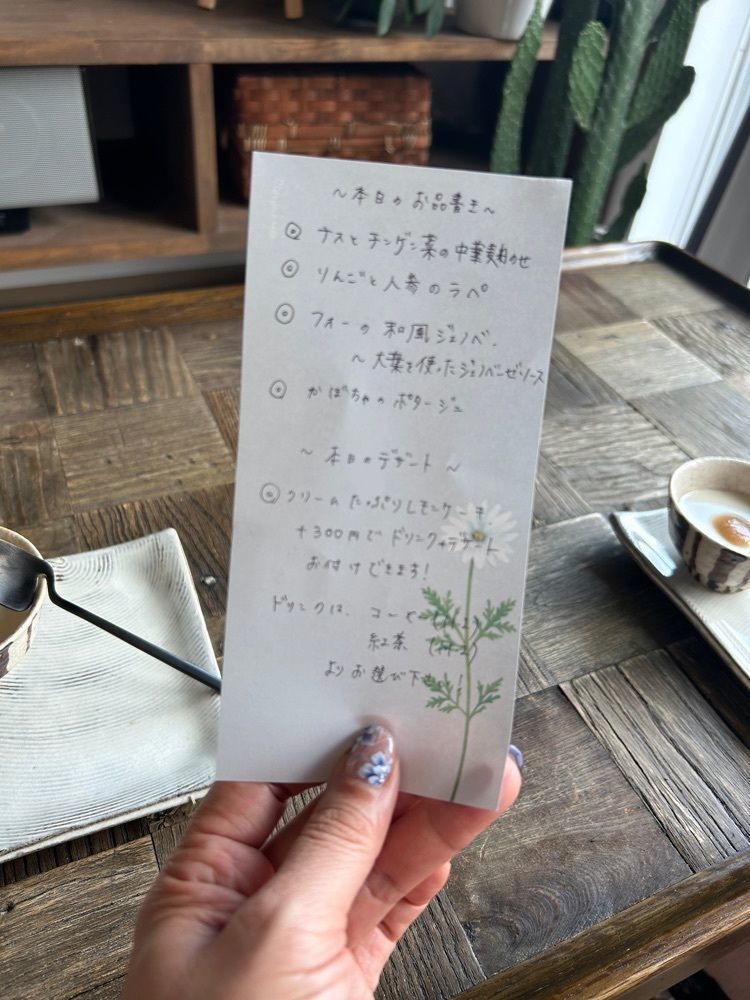 ～本日のお品書き～
◎ ナスとチンゲン菜の中華麺のせ
◎ りんごと人参のラペ
◎ フォーの和風ジェノベ.
～大葉を使ったジェノベーゼソース
◎ かぼちゃのポタージュ
～本日のデザート～
◎クリームたっぷりレモンケーキ
+300円でドリンク+デザート
お付けできます!
ドリンクは、コーヒー
紅茶
よりお選び下さい!